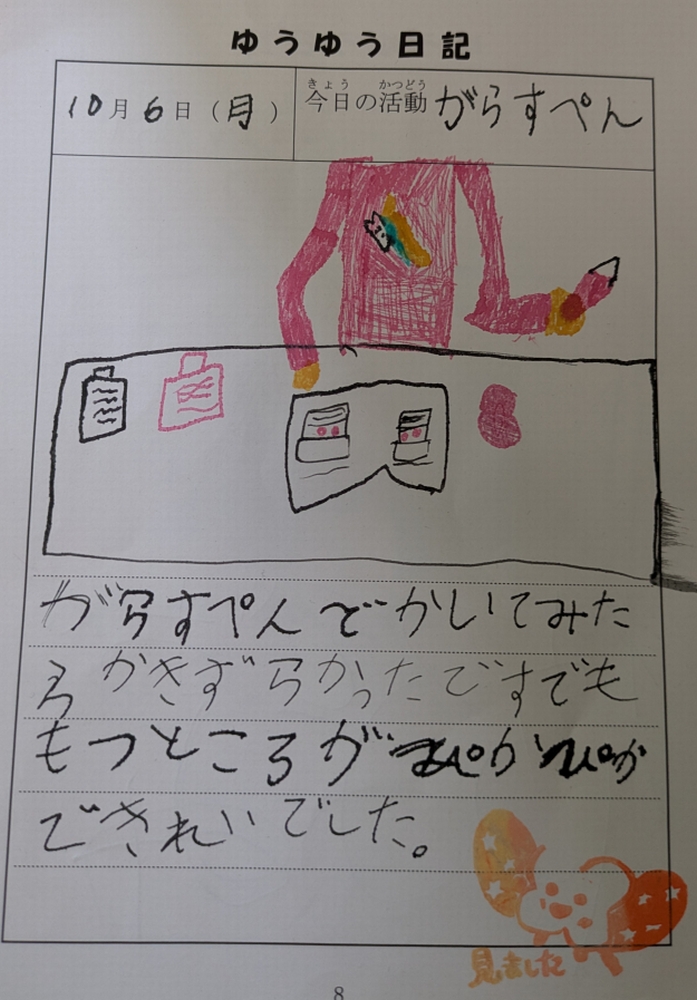 ゆうゆう日記
10月6日（月）
きょう かつどう
今日の活動 がらすぺん
がらすぺんでかいてみた
らかきずらかったですでも
もつところがぴかぴか
できれいでした。
見ました
8